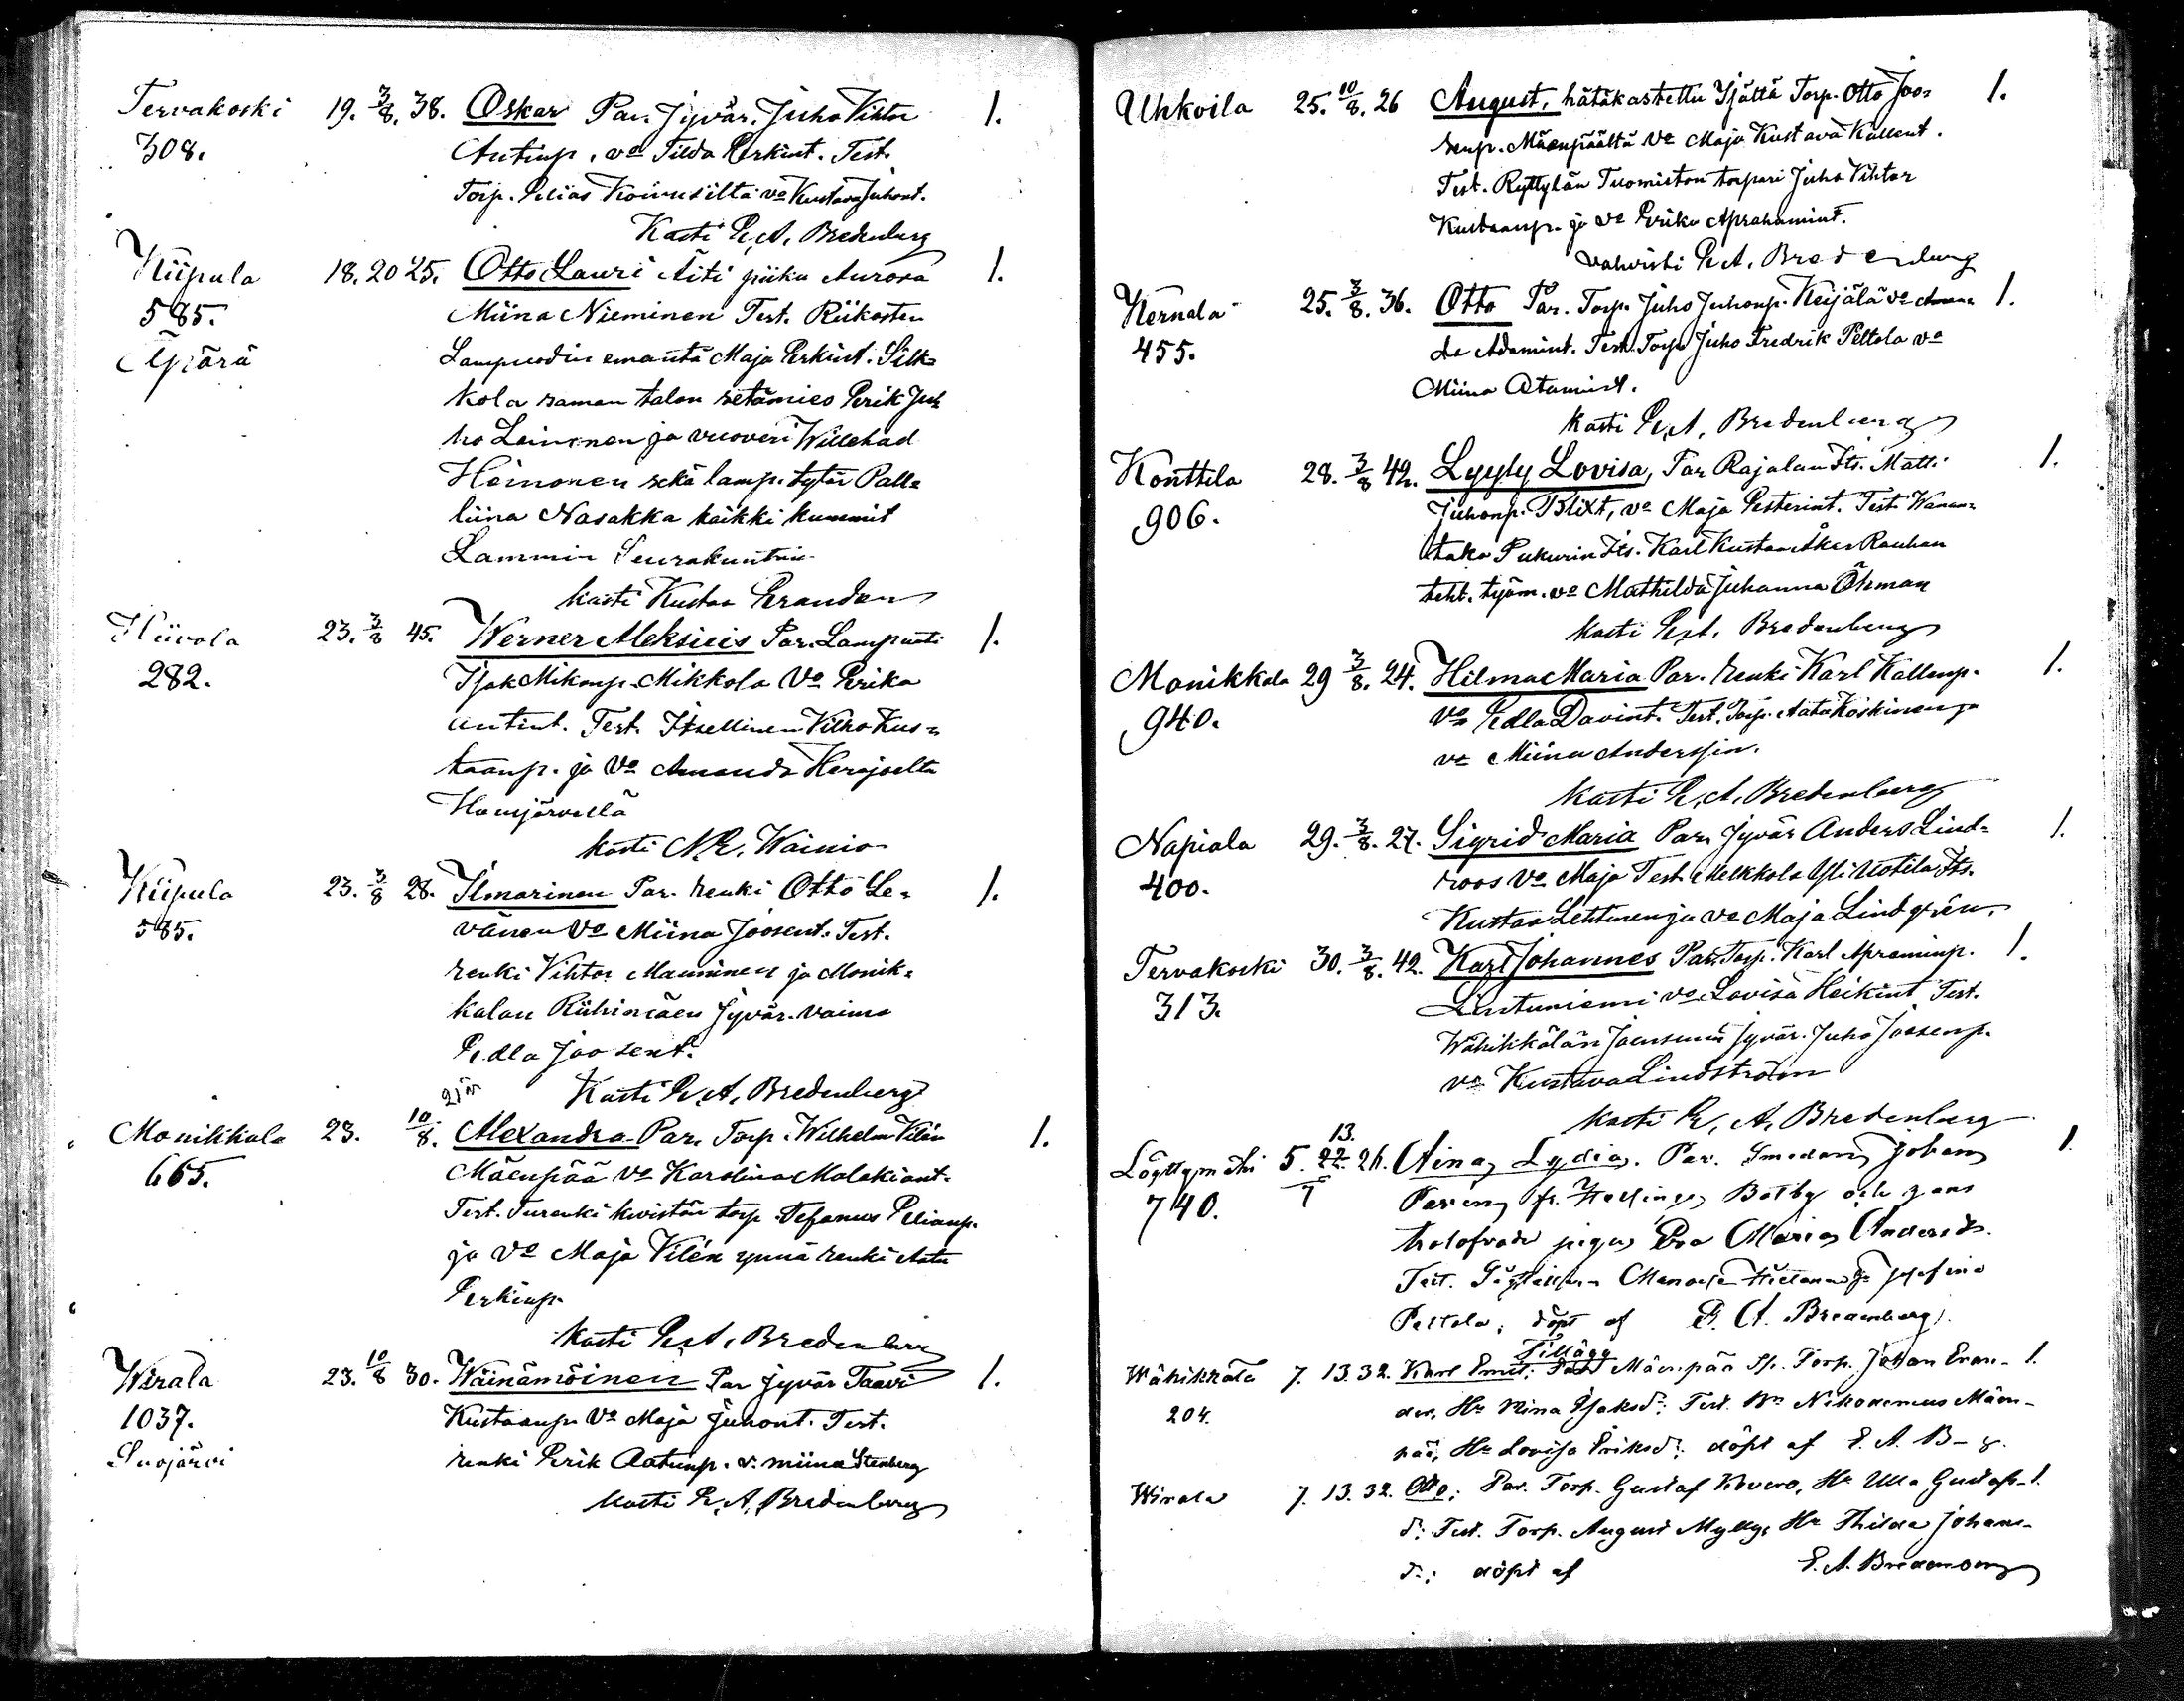 Tervakoski 19. 3/8. 38. Oskar Par. Jyvär. Juho Vihtor 1.
308. Antinp. vo Tilda Erkint. Test.
Torp. Elias Koivusilta vo Kustava Juhont.
Kasti E. A. Bredenberg
Kiipula 18. 20 25. Otto Lauri Äiti piika Aurora 1.
585. Miina Nieminen Test. Riikosten
Äpärä Lampuodin emäntä Maja Erkint. Silk=
kola saman talon setämies Erik Ju=
ho Leinonen ja vuoveri Willehad
Heinonen sekä lamp. tytär Pau=
liina Nasakka kaikki kummit
Lammin Seurakuntaa
kasti Kustaa Granden
Hiivola 23. 3/8 45. Werner Aleksius Par. Lampuoti 1.
282. Isak Mikonp. Mikkola Vo Erika
Antint. Test. Itsellinen Vilho Kus=
taanp. ja Vo Amanda Herajoelta
Hausjärveltä
kasti N. E. Wainio
Kiipula 23. 3/8 28. Ilmarinen Par. renki Otto Le= 1.
585. vänen Vo Miina Joosent. Test.
renki Vihtor Manninen ja Monik=
kalan Riihimäen Jyvär. vaimo
Edla Joosent.
Kasti E. A. Bredenberg
Monikkala 23. 10/8. Alexandra Par. Torp. Wilhelm Vilén 1.
665. Mäenpää Vo Karolina Malakiant.
Test. Turenki kwistän torp. Stefanus Elianp.
ja Vo Maja Vilén ynnä renki Aatu
Erkinp.
kasti E. A. Bredenberg
Wirala 23. 10/8 30. Wäinämöinen Par Jyvär Taavi 1.
1037. Kustaanp. Vo Maja Juhont. Test.
Suojärvi renki Erik Aatunp. v. miina Stenberg
kasti E. A. Bredenberg
Uhkoila 25. 10/8. 26 August, hätäkastettu Isältä Torp. Otto Joo= 1.
senp. Mäenpäältä Vo Maja Kustava Kallent.
Test. Ryttylän Tuomiston torpari Juho Vihtor
Kustaanp. ja Vo Erika Aprahamint.
vahvisti E. A. Bredenberg
Kernala 25. 3/8. 36. Otto Par. Torp. Juho Juhonp. Keijälä vo Aman= 1.
455. da Adamint. Test. Torp. Juho Fredrik Peltola vo
Miina Atamint.
kasti E. A. Bredenberg
Konttila 28. 3/8 42. Lyyly Lovisa, Par Rajalan Its. Matti 1.
906. Juhonp. Blixt, vo Maja Esterint. Test. Wanan=
taka Pukurin Its. Karl Kustaa Åker Rauhan
teht. työm. vo Mathilda Juhanna Öhman
kasti E. A. Bredenberg
Monikkala 29 3/8. 24. Hilma Maria Par. renki Karl Kallenp. 1.
940. Vo Edla Davint. Test. Torp. Aatu Koskinen ja
vo Miina Anderssin.
kasti E. A. Bredenberg
Napiala 29. 3/8. 27. Sigrid Maria Par. Jyvär Anders Lind= 1.
400. roos Vo Maja Test. Melkkola Yli Uotila Its.
Kustaa Lehtinen ja vo Maja Lindgrén.
Tervakoski 30. 3/8. 42. Karl Johannes Par. Torp. Karl Apraminp. 1.
313. Lintuniemi vo Lovisa Heikint Test.
Wähikkälän Jaensuun jyvär. Juho Joosenp.
vo Kustava Lindström
kasti E. A. Bredenberg
Löyttymäki 5. 13. 22/7 26. Aina Lydia. Par. Smeden Johan 1.
740. fr. Botby och hans
trolofvade pigan Eva Maria Andersdr.
Test. Josefina
Peltola; döpt af E. A. Bredenberg.
Tillägg
Wähikkälä 7. 13. 32. Karl Emil; Par Mäenpää Sp. Torp. Johan Evan- 1.
204. der, Hu Mina Isaksdr; Test. Bn Nikodemus Mäen-
pää, Hu Lovisa Eriksdr; döpt af E. A. B-g.
Wirala 7. 13. 32. Otto; Par. Torp. Gustaf Kovero, Hu Ulla Gustafs- 1.
dr: Test. Torp. August Mylly, Hu Thilda Johans-
dr; döpt af E. A. Bredenberg